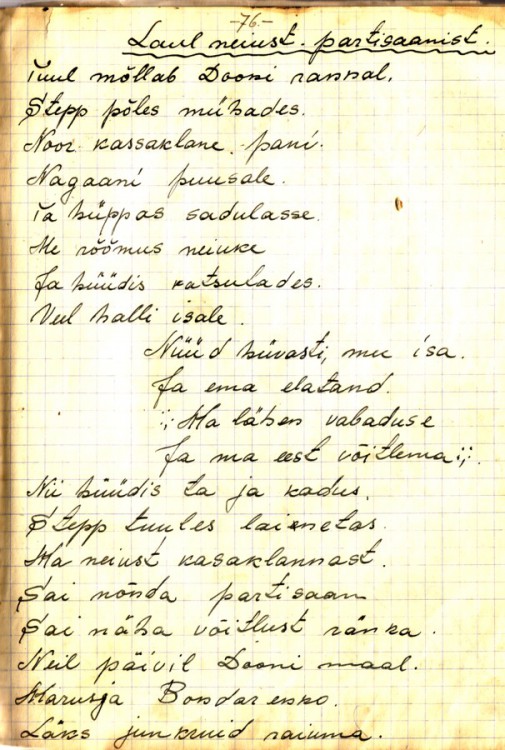 -76-
Laul neiust-partisaanist.
Tuul möllab Dooni rannal.
Stepp põles mühades.
Noor kassaklane pani.
Nagaani puusale.
Ta hüppas sadulasse.
Me rõõmus neiuke
Ja hüüdis ratsulades.
Veel halli isale.
Nüüd hüvasti, mu isa.
Ja ema elatand.
:,: Ma lähen vabaduse
Ja ma eest võitlema :,:
Nii hüüdis ta ja kadus.
Stepp tuules lainetas.
Ma neiust kasaklannast.
Sai nõnda partisaan
Sai näha võitlust ränka.
Neil päivil Dooni maal.
Marusja Bondarenko.
Läks junkruid raiuma.